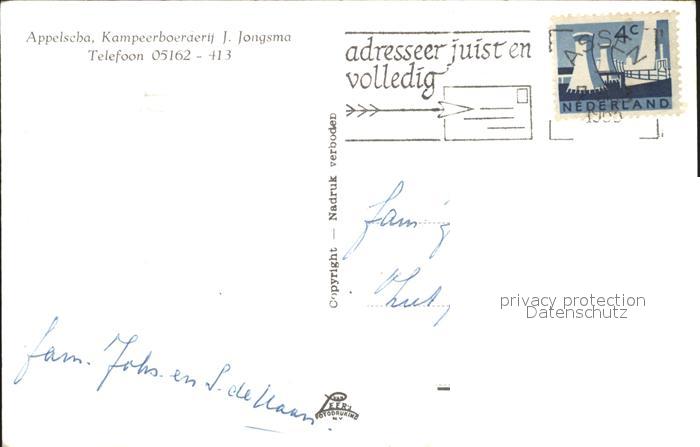 Appelscha, Kampeerboerderij J. Jongsma
Telefoon 05162 - 413
adresseer juist en
volledig
ASSEN
4c
NEDERLAND
Copyright — Nadruk verboden
privacy protection
Datenschutz
fam. Johs. en S. de Haan.
FOTODRUKIND
N.V.